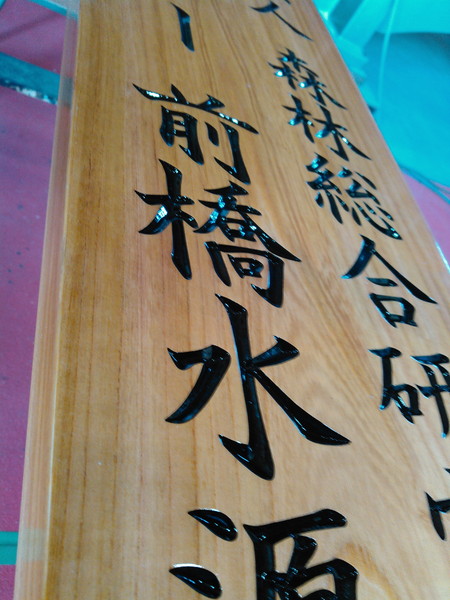 人 森林総合研
ー 前橋水源